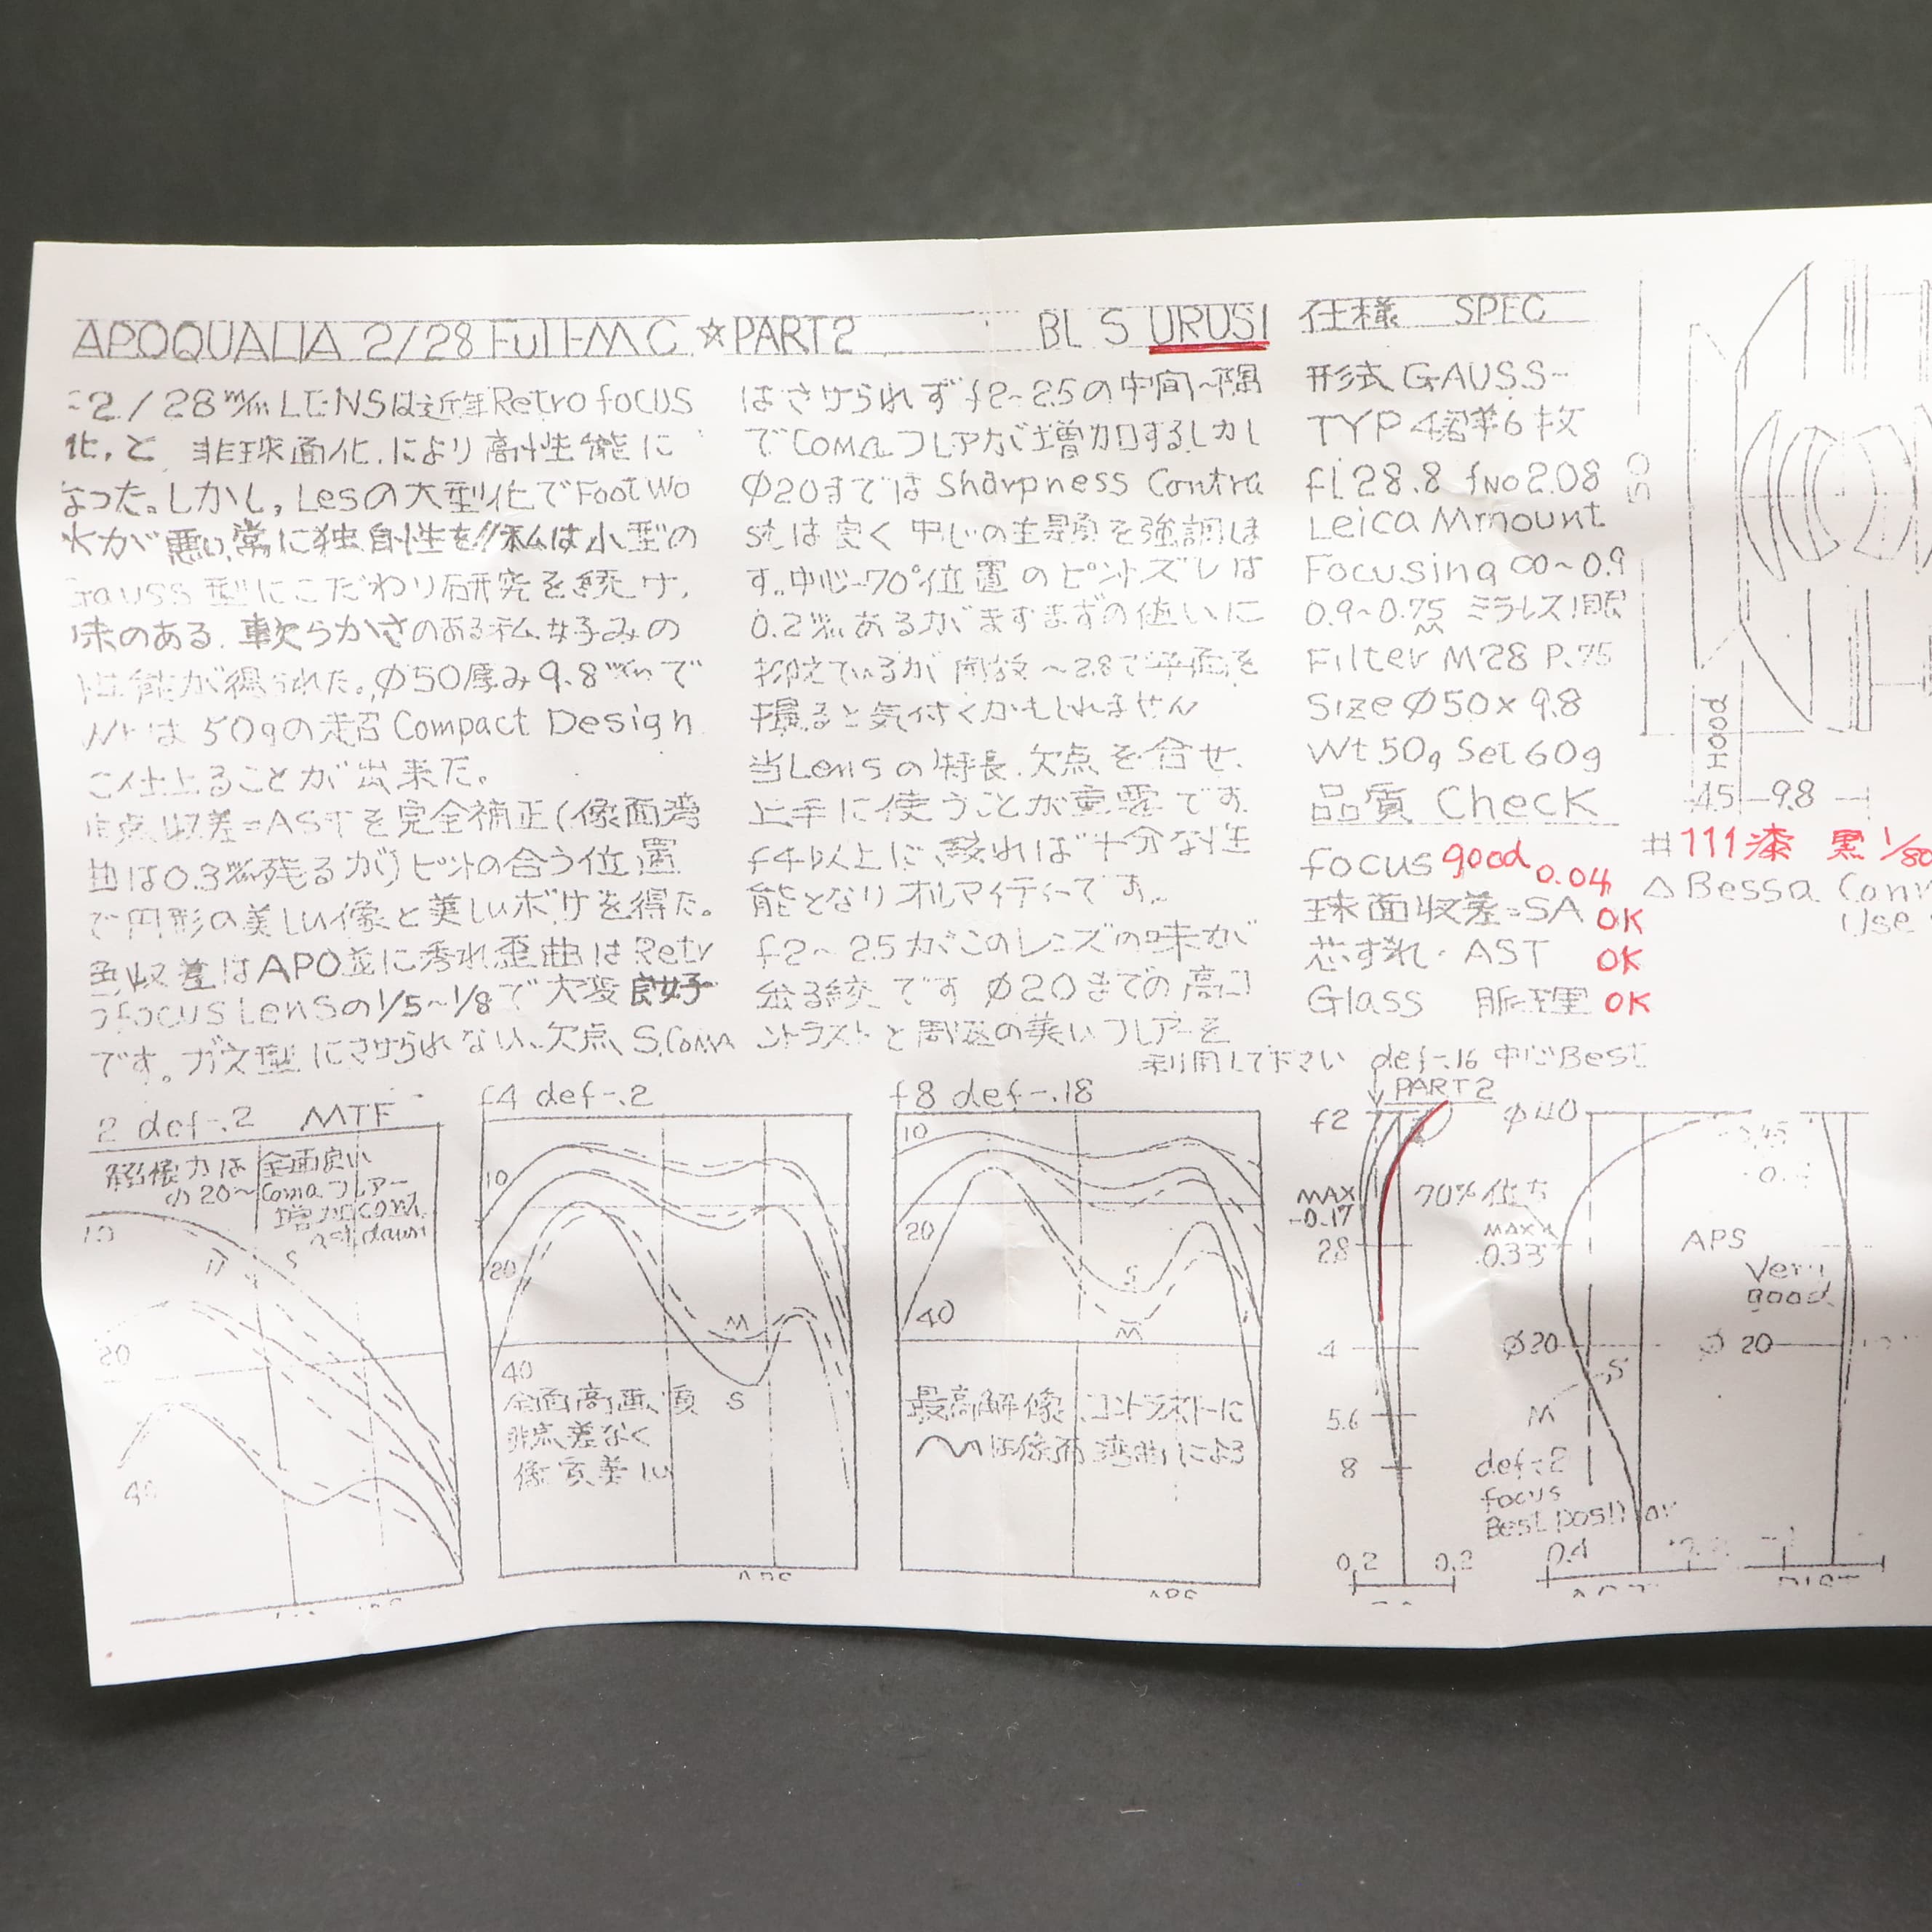 APOQUALIA 2/28 Full-MC ☆PART2 BL S URUSI
2/28m/m LENSは近年Retro focus
化,と 非球面化.により高性能に
なった。しかし,Lesの大型化でFoot Wo
が悪い,常に独自性を!!私は小型の
Gauss型にこだわり研究を続け,
味のある.軟らかさのある私好みの
性能が得られた。,Φ50厚み9.8m/mで
Wtは50gの超Compact Design
に仕上ることが出来た。
非点収差=ASTを完全補正(像面湾
曲は0.3m/m残るが)ピントの合う位置
で円形の美しい像と美しいボケを得た。
色収差はAPO並に秀れ歪曲はRetr
ofocus Lensの1/5~1/8で大変良好
です。ガウス型にさけられない、欠点、S.Coma
はさけられずf2~2.5の中間~隅
でComaフレアが増加するしかし
Φ20まではSharpness Contra
stは良く中心の主題を強調しま
す.中心~70%位置のピントズレは
0.2m/mあるがまずまずの値いに
抑えているが開放~2.8で平面を
撮ると気付くかもしれません
当Lensの特長.欠点を合せ、
上手に使うことが重要です.
f4以上に、絞れば十分な性
能となりオルマイティーです。
f2~2.5がこのレンズの味が
出る絞です Φ20までの高コ
ントラストと周辺の美しいフレアーを
利用して下さい
仕様 SPEC
形式 GAUSS-
TYP 4群6枚
fl 28.8 fNo2.08
Leica Mmount
Focusing ∞~0.9
0.9~0.75 ミラレス!眼
M
Filter M28 P.75
Size Φ50×9.8
Wt 50g Set 60g
品質 Check
focus good 0.04
球面収差=SA OK
芯ずれ・AST OK
Glass 脈理 OK
50
Hood
4.5 9.8
#111漆 黒 1/80
△Bessa
Use
2 def-.2 MTF
解像力は 全面良い
の20~ Comaフレアー
増加 cont
ast daun
10
M S
20
40
f4 def-.2
10
20
40
M
S
全面高画質
非点差なく
像気美しい
f8 def-.18
10
20
40
S
M
最高解像、コントラストに
は像面湾曲による
def-.16 中心Best
PART2
f2
MAX
-0.17
2.8
4
5.6
8
0.2 0.2
Φ40
70%位置
MAX
0.33
Φ20
S
M
def-.2
focus
Best position
0.4
APS
Very
good
Φ 20